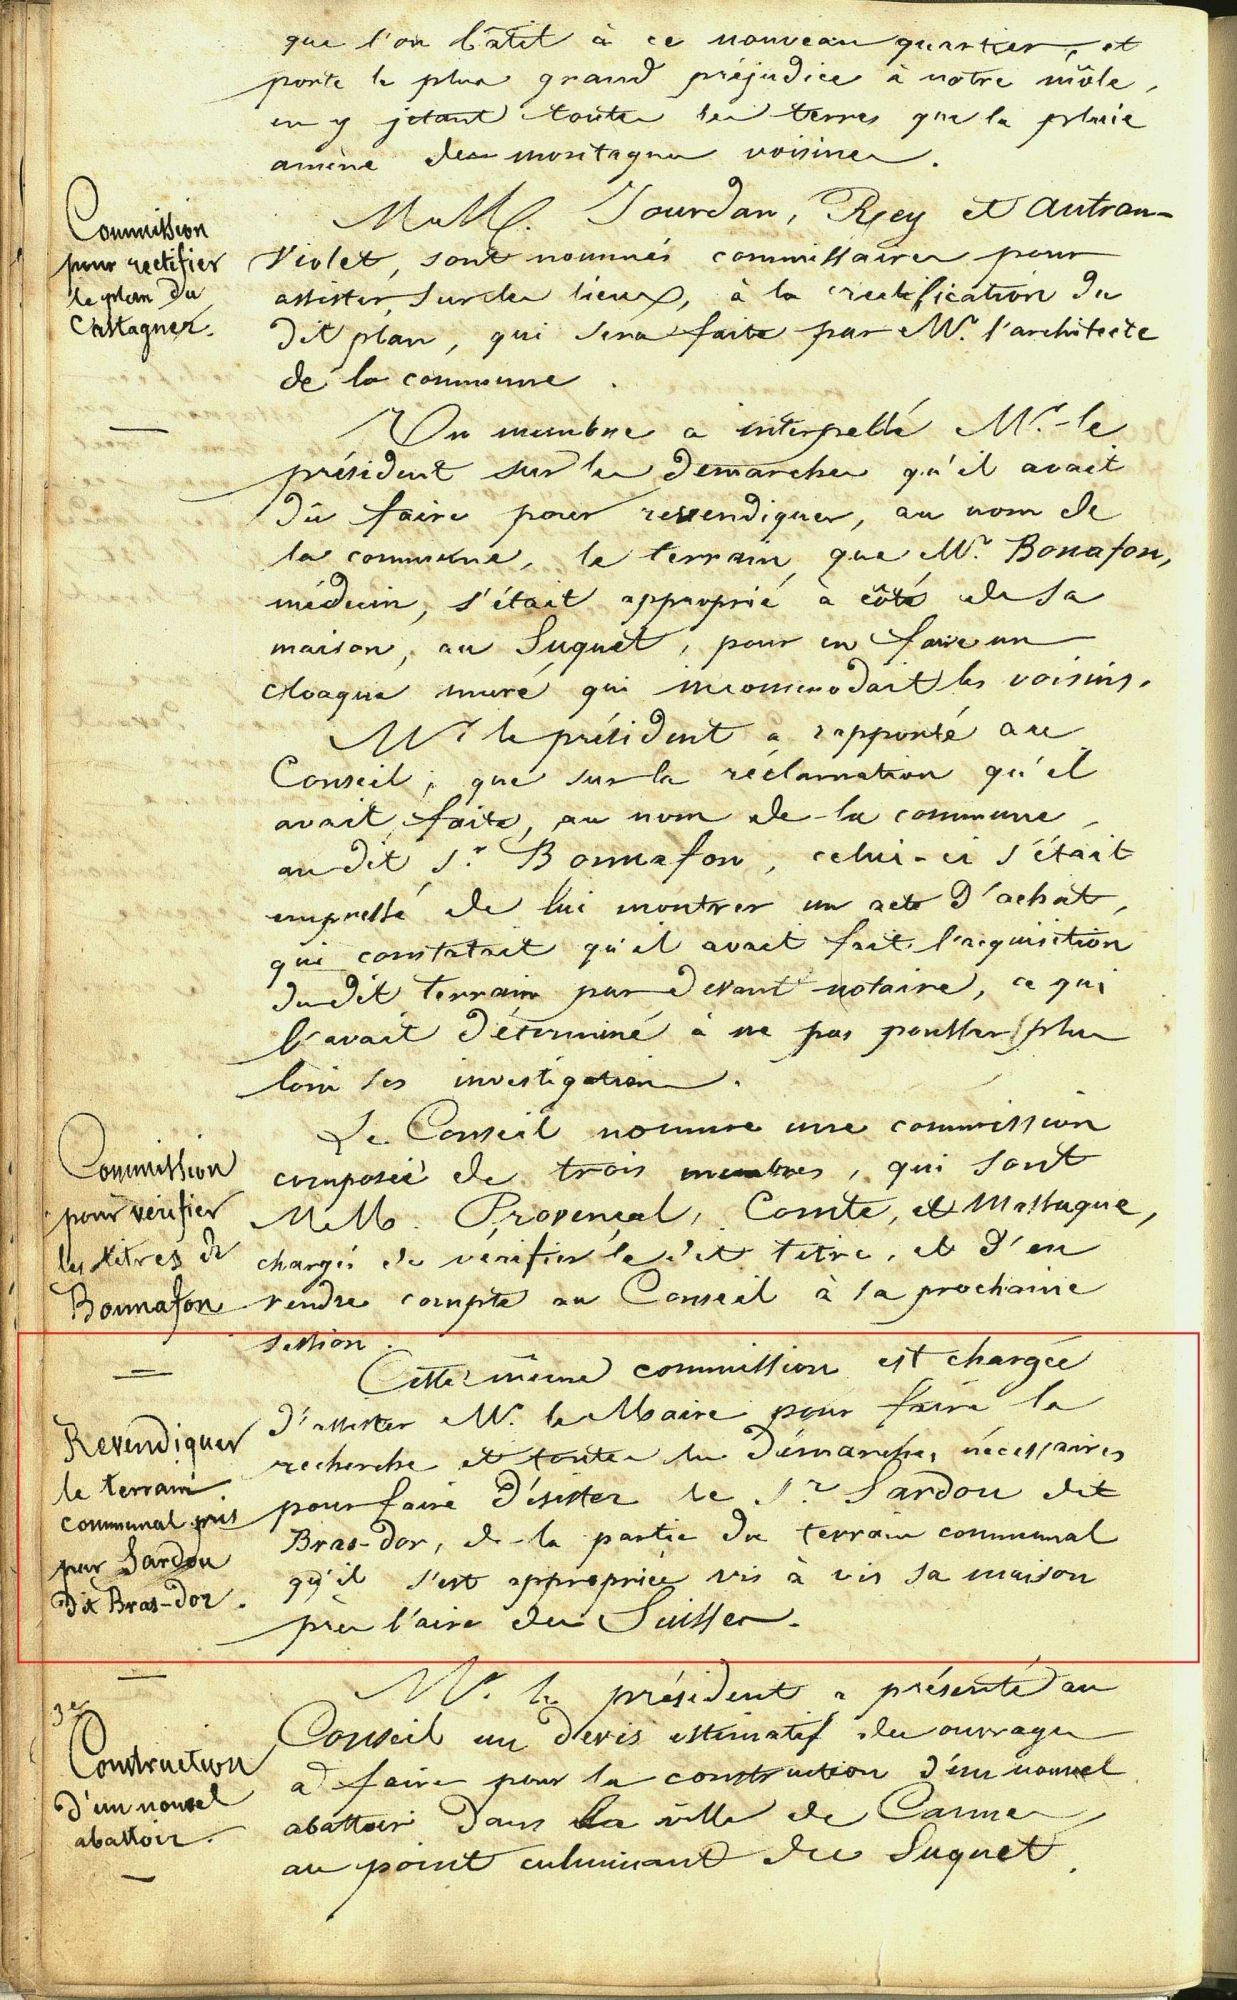 que l'on bâtit à ce nouveau quartier, et
porte le plus grand préjudice à notre môle,
en y jetant toutes les terres que la pluie
amène des montagnes voisines.
Commission
pour rectifier
le plan du
Castagner.
M.M. Jourdan, Rey et Autran-
Violet, sont nommés commissaires pour
assister sur les lieux, à la rectification du
dit plan, qui sera faite par Mr. l'architecte
de la commune.
Un membre a interpellé Mr. le
président sur les demarches qu'il avait
dû faire pour revendiquer, au nom de
la commune, le terrain que Mr. Bonafon,
médecin, s'était approprié à côté de sa
maison, au Suquet, pour en faire un
cloaque muré qui incommodait les voisins.
Mr. le président a rapporté au
Conseil, que sur la réclamation qu'il
avait faite, au nom de la commune,
au dit Sr. Bonnafon, celui-ci s'était
empressé de lui montrer un acte d'achat,
qui constatait qu'il avait fait l'acquisition
du dit terrain par devant notaire, ce qui
l'avait déterminé à ne pas pousser plus
loin ses investigations.
Commission
pour vérifier
les titres de
Bonnafon
Le Conseil nomme une commission
composée de trois membres, qui sont
M.M. Provençal, Comte, et Massuque,
chargés de vérifier le dit titre, et d'en
rendre compte au Conseil à sa prochaine
session.
Revendiquer
le terrain
communal pris
par Sardou
dit Bras-dor.
Cette même commission est chargée
d'assister Mr. le Maire pour faire la
recherche et toutes les démarches nécessaires
pour faire désister le Sr. Sardou dit
Bras-dor, de la partie du terrain communal
qu'il s'est appropriée vis à vis sa maison
près l'aire des Suisses.
3e
Construction
d'un nouvel
abattoir.
Mr. le président a présenté au
Conseil un devis estimatif des ouvrages
à faire pour la construction d'un nouvel
abattoir dans la ville de Cannes,
au point culminant du Suquet.